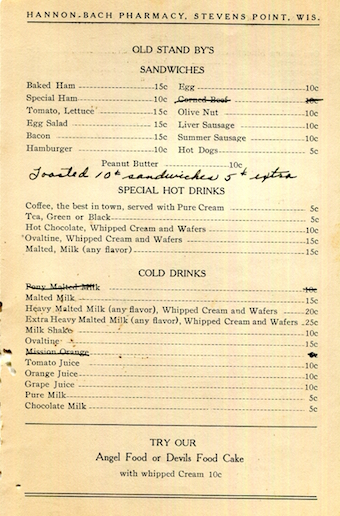 HANNON-BACH PHARMACY, STEVENS POINT, WIS.
OLD STAND BY'S
SANDWICHES
Baked Ham 15c Egg 10c
Special Ham 10c Corned Beef 10c
Tomato, Lettuce 15c Olive Nut 10c
Egg Salad 15c Liver Sausage 10c
Bacon 15c Summer Sausage 10c
Hamburger 10c Hot Dogs 5c
Peanut Butter 10c
Toasted 10¢ sandwiches 5¢ extra
SPECIAL HOT DRINKS
Coffee, the best in town, served with Pure Cream 5c
Tea, Green or Black 5c
Hot Chocolate, Whipped Cream and Wafers 10c
Ovaltine, Whipped Cream and Wafers 15c
Malted, Milk (any flavor) 15c
COLD DRINKS
Pony Malted Milk 10c
Malted Milk 15c
Heavy Malted Milk (any flavor), Whipped Cream and Wafers 20c
Extra Heavy Malted Milk (any flavor), Whipped Cream and Wafers 25c
Milk Shake 10c
Ovaltine 15c
Mission Orange
Tomato Juice 10c
Orange Juice 10c
Grape Juice 10c
Pure Milk 5c
Chocolate Milk 5c
TRY OUR
Angel Food or Devils Food Cake
with whipped Cream 10c